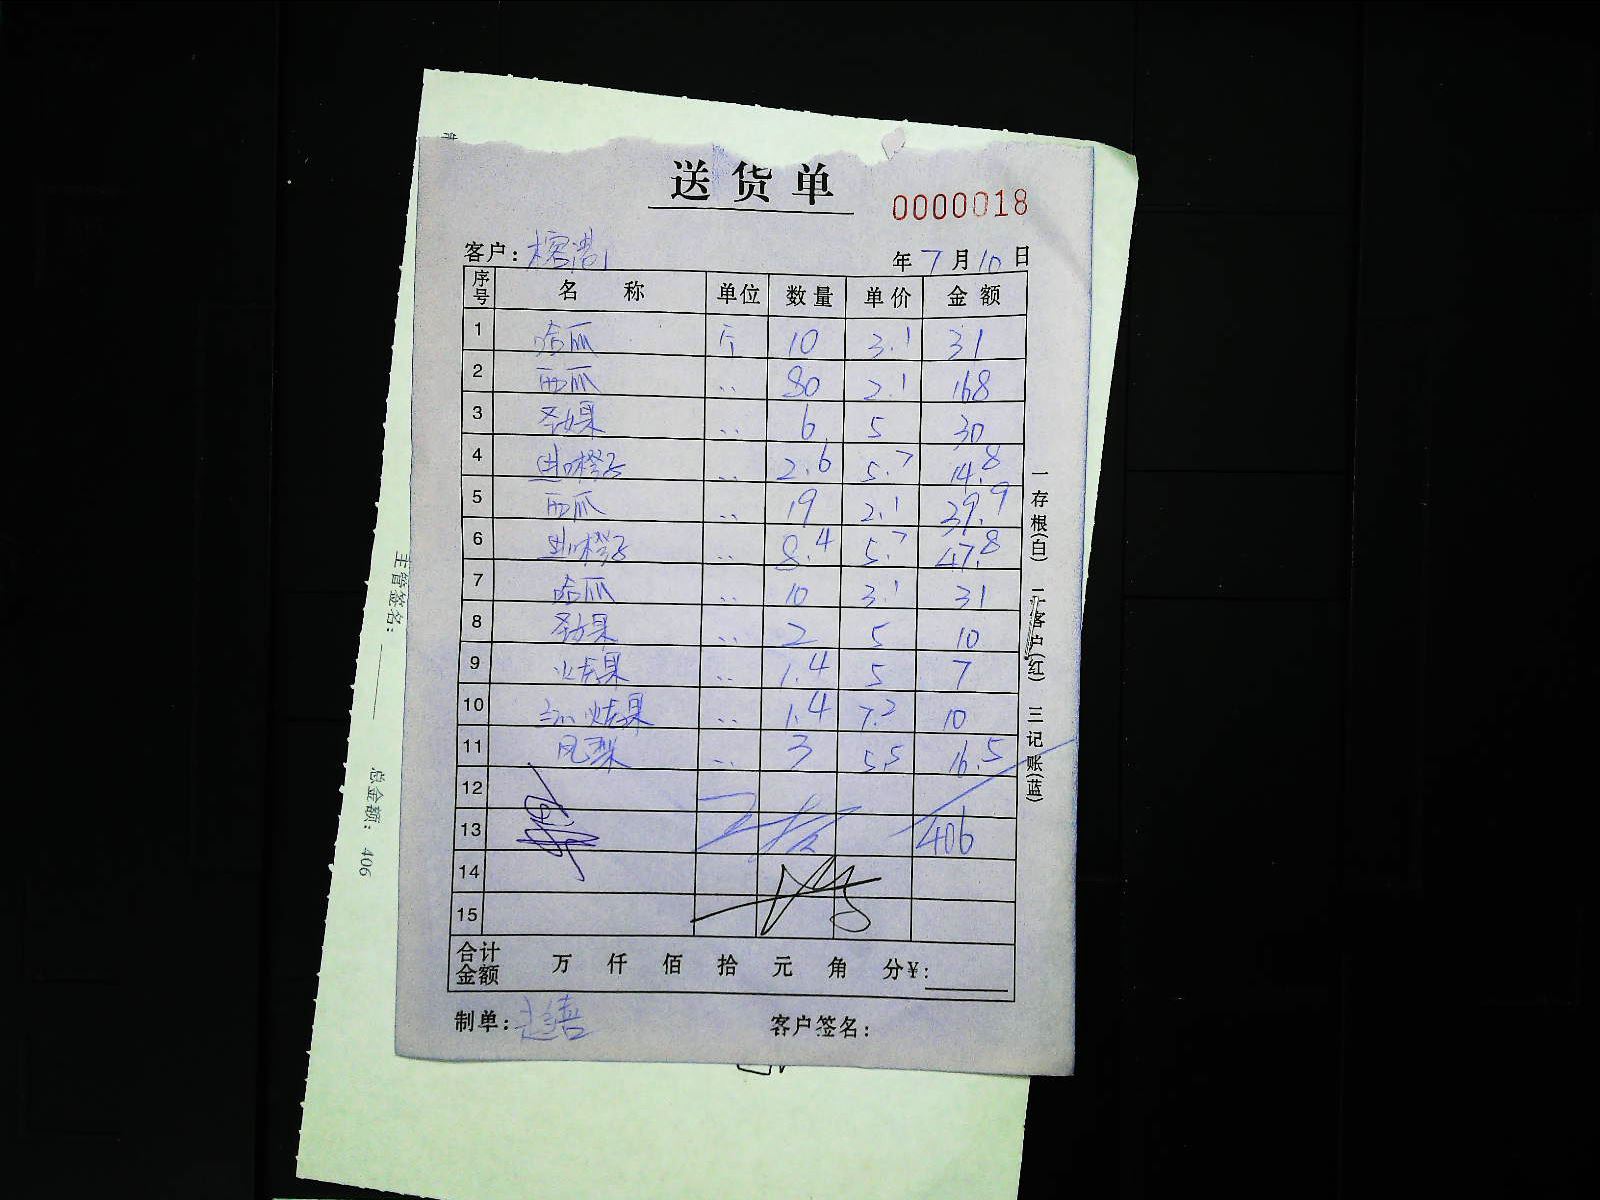 送货单
0000018
客户: 榕港
年 7 月 10 日
序号 名 称 单位 数量 单价 金额
1 哈瓜 斤 10 3.1 31
2 西瓜 .. 80 2.1 168
3 圣女果 .. 6 5 30
4 进口橙子 .. 2.6 5.7 14.8
5 西瓜 .. 19 2.1 39.9
6 进口橙子 .. 8.4 5.7 47.8
7 哈瓜 .. 10 3.1 31
8 圣女果 .. 2 5 10
9 火龙果 .. 1.4 5 7
10 火龙果 .. 1.4 7.2 10
11 凤梨 .. 3 5.5 16.5
12
13 406
14
15
合计金额 万 仟 佰 拾 元 角 分¥:
制单:
客户签名:
一存根(白) 二客户(红) 三记账(蓝)
主管签名:
总金额: 406